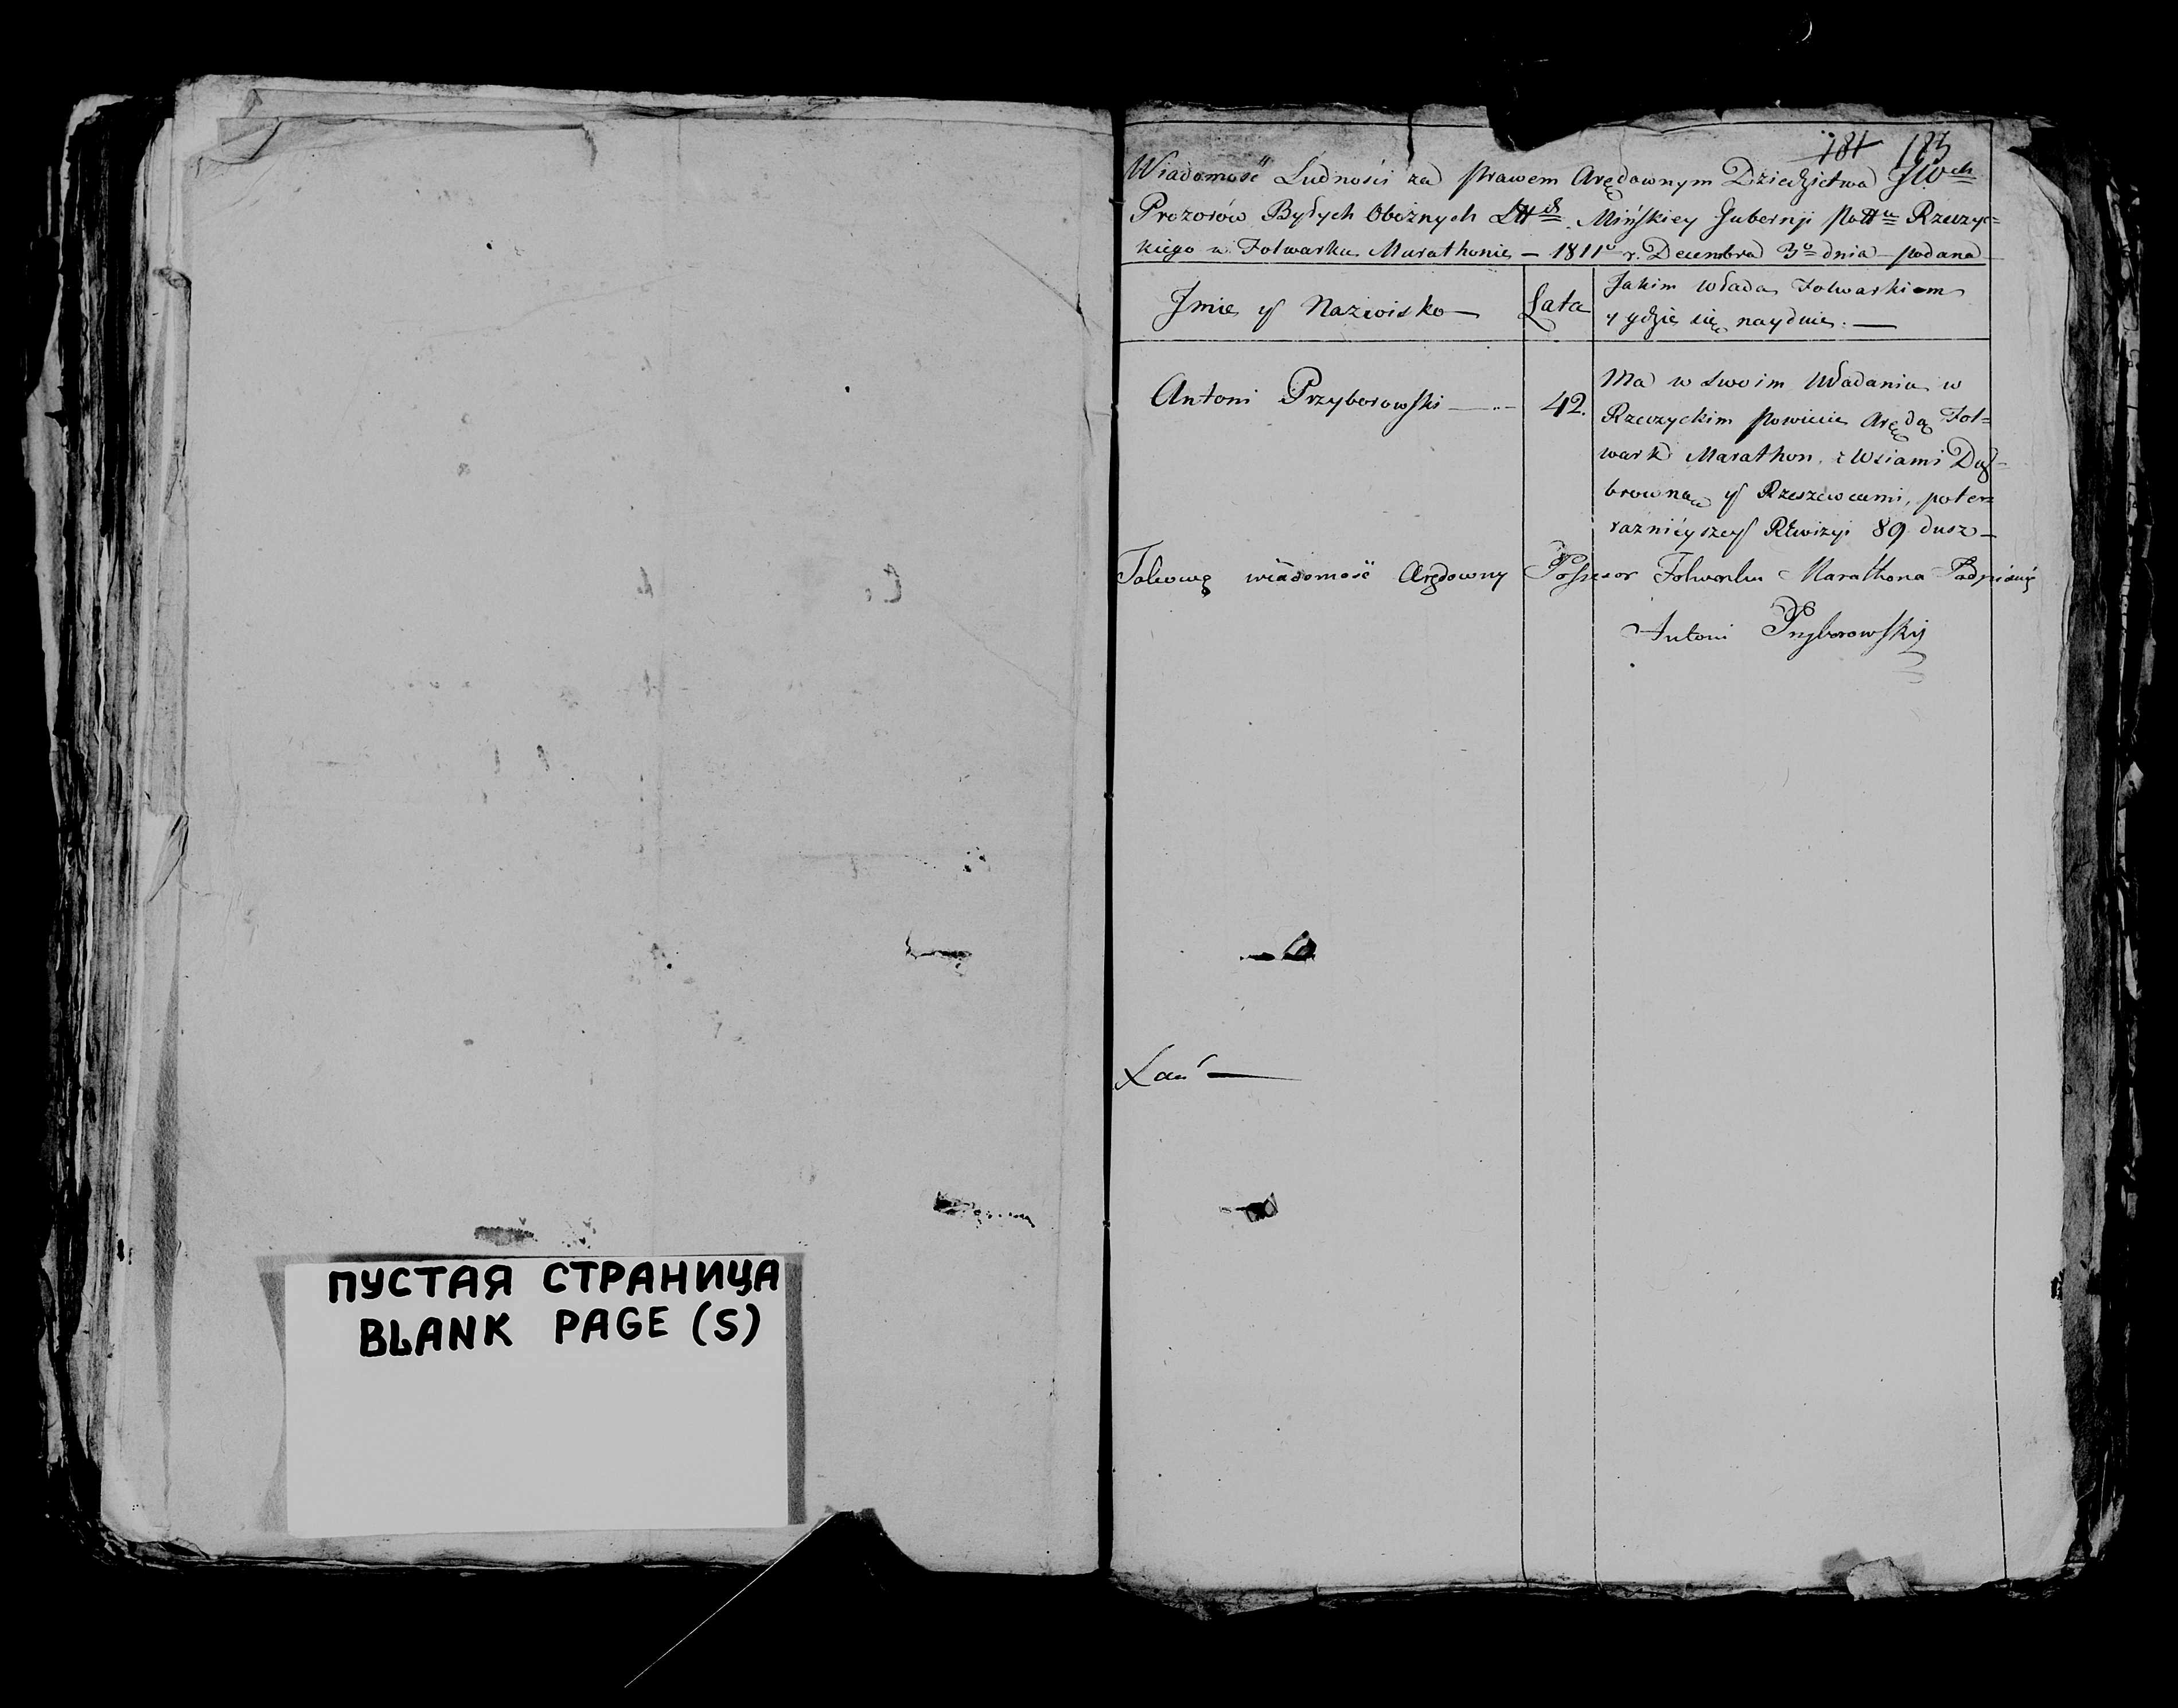 ПУСТАЯ СТРАНИЦА
BLANK PAGE (S)
181 183
Wiadomość Ludności za Prawem Arędownym Dziedzictwa JWch
Prozorów Byłych Oboźnych Mińskiey Gubernji Rzeczyc=
kiego w Folwarku Marathonie — 1811o r. Decembra 3o dnia podana
Jmie y Nazwisko — Lata Jakim włada Folwarkiem
y gdzie się nayduie. —
Antoni Przyborowski — 42. Ma w swoim Władaniu w
Rzeczyckim Powiecie Arędą Fol=
wark Marathon, z Wsiami Dą=
browną y Rzeszewcami, poter=
raznieyszey Rewizyi 89 dusz —
Takową wiadomość Arędowny Possesor Folwarku Marathona Podpisuię
Antoni Przyborowskij